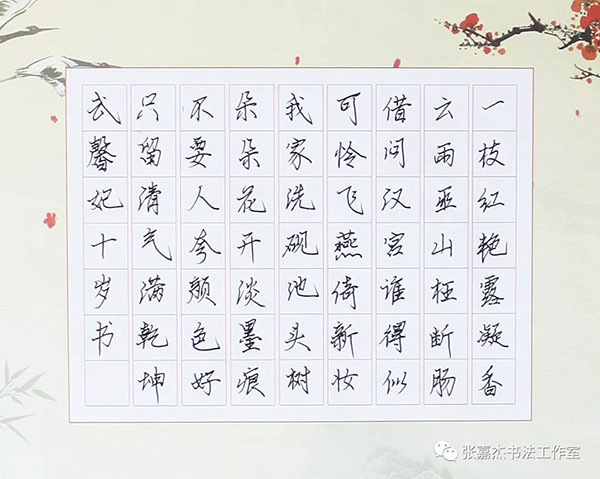 一枝红艳露凝香
云雨巫山枉断肠
借问汉宫谁得似
可怜飞燕倚新妆
我家洗砚池头树
朵朵花开淡墨痕
不要人夸颜色好
只留清气满乾坤
武馨妃十岁书
张嘉杰书法工作室